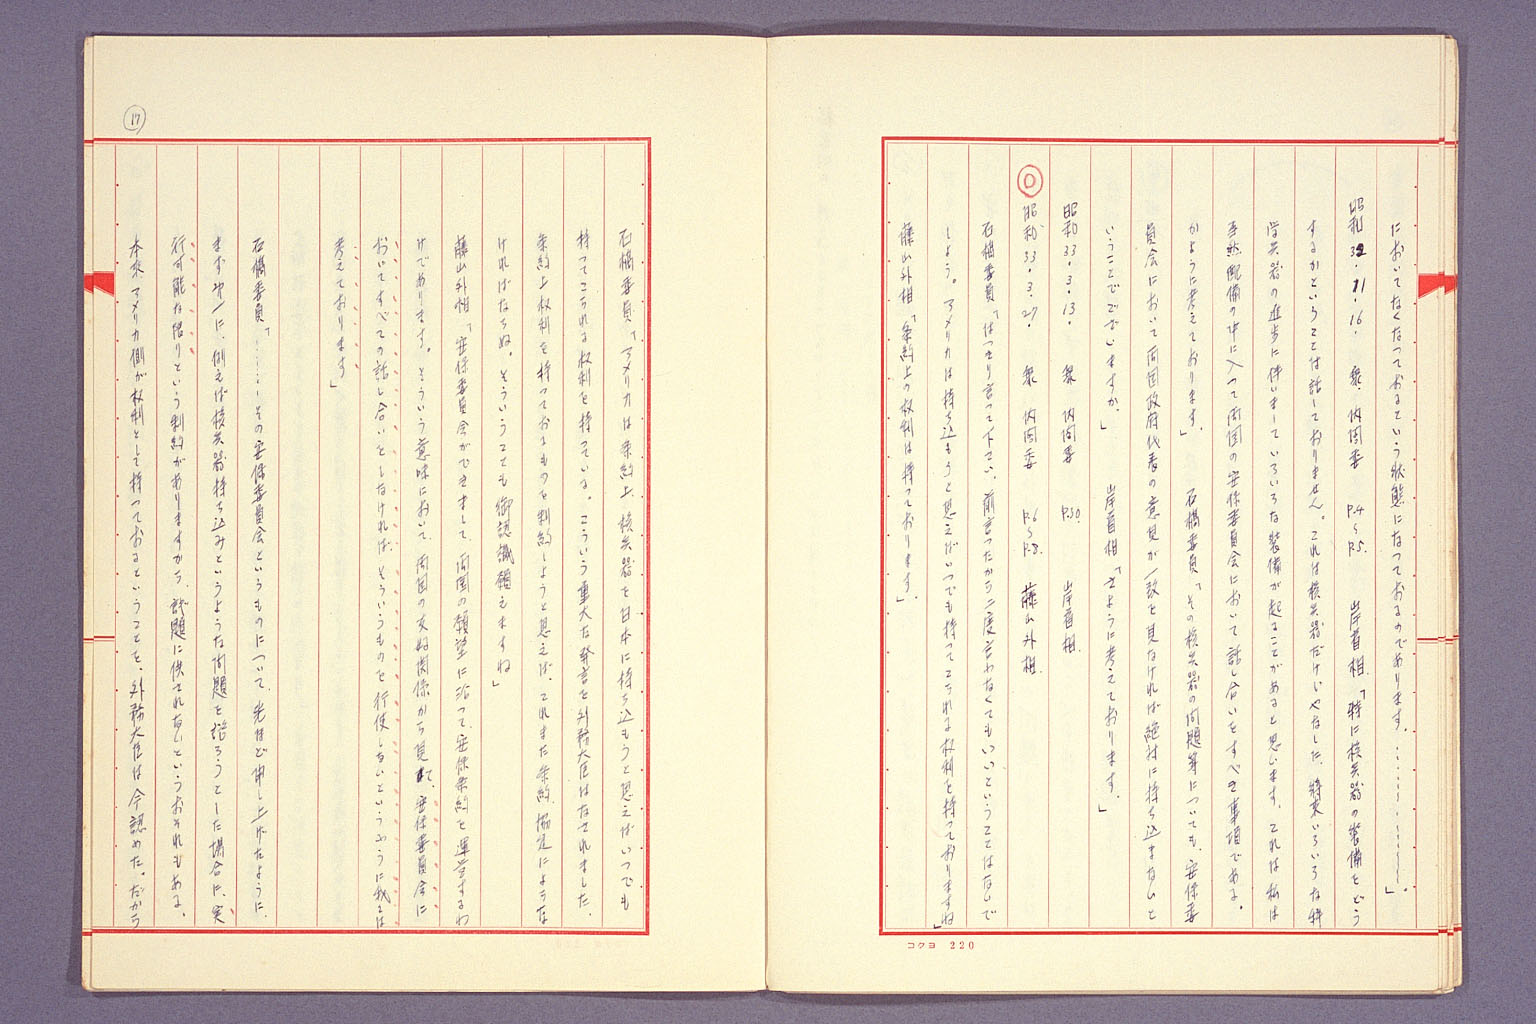 においてなくなつておるという状態になつておるのであります。…………」。
昭和32.11.16. 衆 内閣委 P.4～P.5. 岸首相.「特に核兵器の装備をどう
するかということは話しておりません。これは核兵器だけじやなしに、将来いろいろな科
学兵器の進歩に伴いましていろいろな装備が起ることがあると思います。これは私は
当然配備の中に入つて両国の安保委員会において話し合いをすべき事項である。
かように考えております。」 石橋委員「その核兵器の問題等についても、安保委
員会において両国政府代表の意見が一致を見なければ絶対に持ち込まないと
いうことでございますか.」 岸首相「さように考えております.」
昭和33.3.13. 衆 内閣委 P.30. 岸首相.
◎ 昭和33.3.27. 衆 内閣委 P.6～P.8. 藤山外相.
石橋委員「はつきり言つて下さい。前言つたから二度言わなくてもいいということはないで
しよう。アメリカは持ち込もうと思えばいつでも持つてこられる権利を持つておりますね」
藤山外相「条約上の権利は持つております.」
石橋委員「アメリカは条約上、核兵器を日本に持ち込もうと思えばいつでも
持つてこられる権利を持つている。こういう重大な発言を外務大臣はなされました.
条約上権利を持つておるものを制約しようと思えば、これまた条約、協定によらな
ければならぬ。そういうことも御認識願えますね」
藤山外相「安保委員会ができまして、両国の願望に沿つて、安保条約を運営するわ
けであります。そういう意味において、両国の友好関係から見て、安保委員会に
おいてすべての話し合いをしなければ、そういうものを行使しないというふうに我々は
考えております」
石橋委員「……その安保委員会というものについて、先ほど申し上げたように、
まず第一に、例えば核兵器持ち込みというような問題を諮ろうとした場合に、実
行可能な限りという制約がありますから、議題に供されないというおそれもある。
本来アメリカ側が権利として持つておるということを、外務大臣は今認めた。だから
17
コクヨ 220